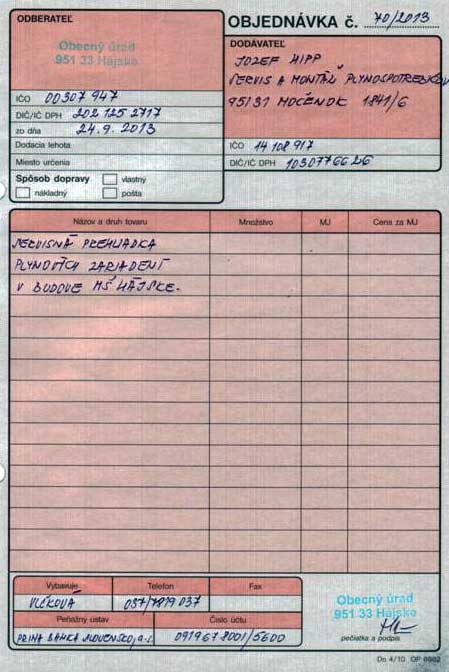 ODBERATEĽ
Obecný úrad
951 33 Hájske
IČO 00307947
DIČ/IČ DPH 2021252717
zo dňa 24.9.2013
Dodacia lehota
Miesto určenia
Spôsob dopravy
vlastný
nákladný
pošta
OBJEDNÁVKA č. 70/2013
DODÁVATEĽ
JOZEF HIPP
SERVIS A MONTÁŽ PLYNOSPOTREBIČOV
95131 MOČENOK 1841/6
IČO 14108917
DIČ/IČ DPH 1030776626
Názov a druh tovaru Množstvo MJ Cena za MJ
SERVISNÁ PREHLIADKA
PLYNOVÝCH ZARIADENÍ
V BUDOVE MŠ HÁJSKE.
Vybavuje Telefon Fax
VLČKOVÁ 037/7819037
Peňažný ústav Číslo účtu
PRIMA BANKA SLOVENSKO, a.s. 0919678001/5600
Obecný úrad
951 33 Hájske
pečiatka a podpis
Dn 4/10 OP 6982